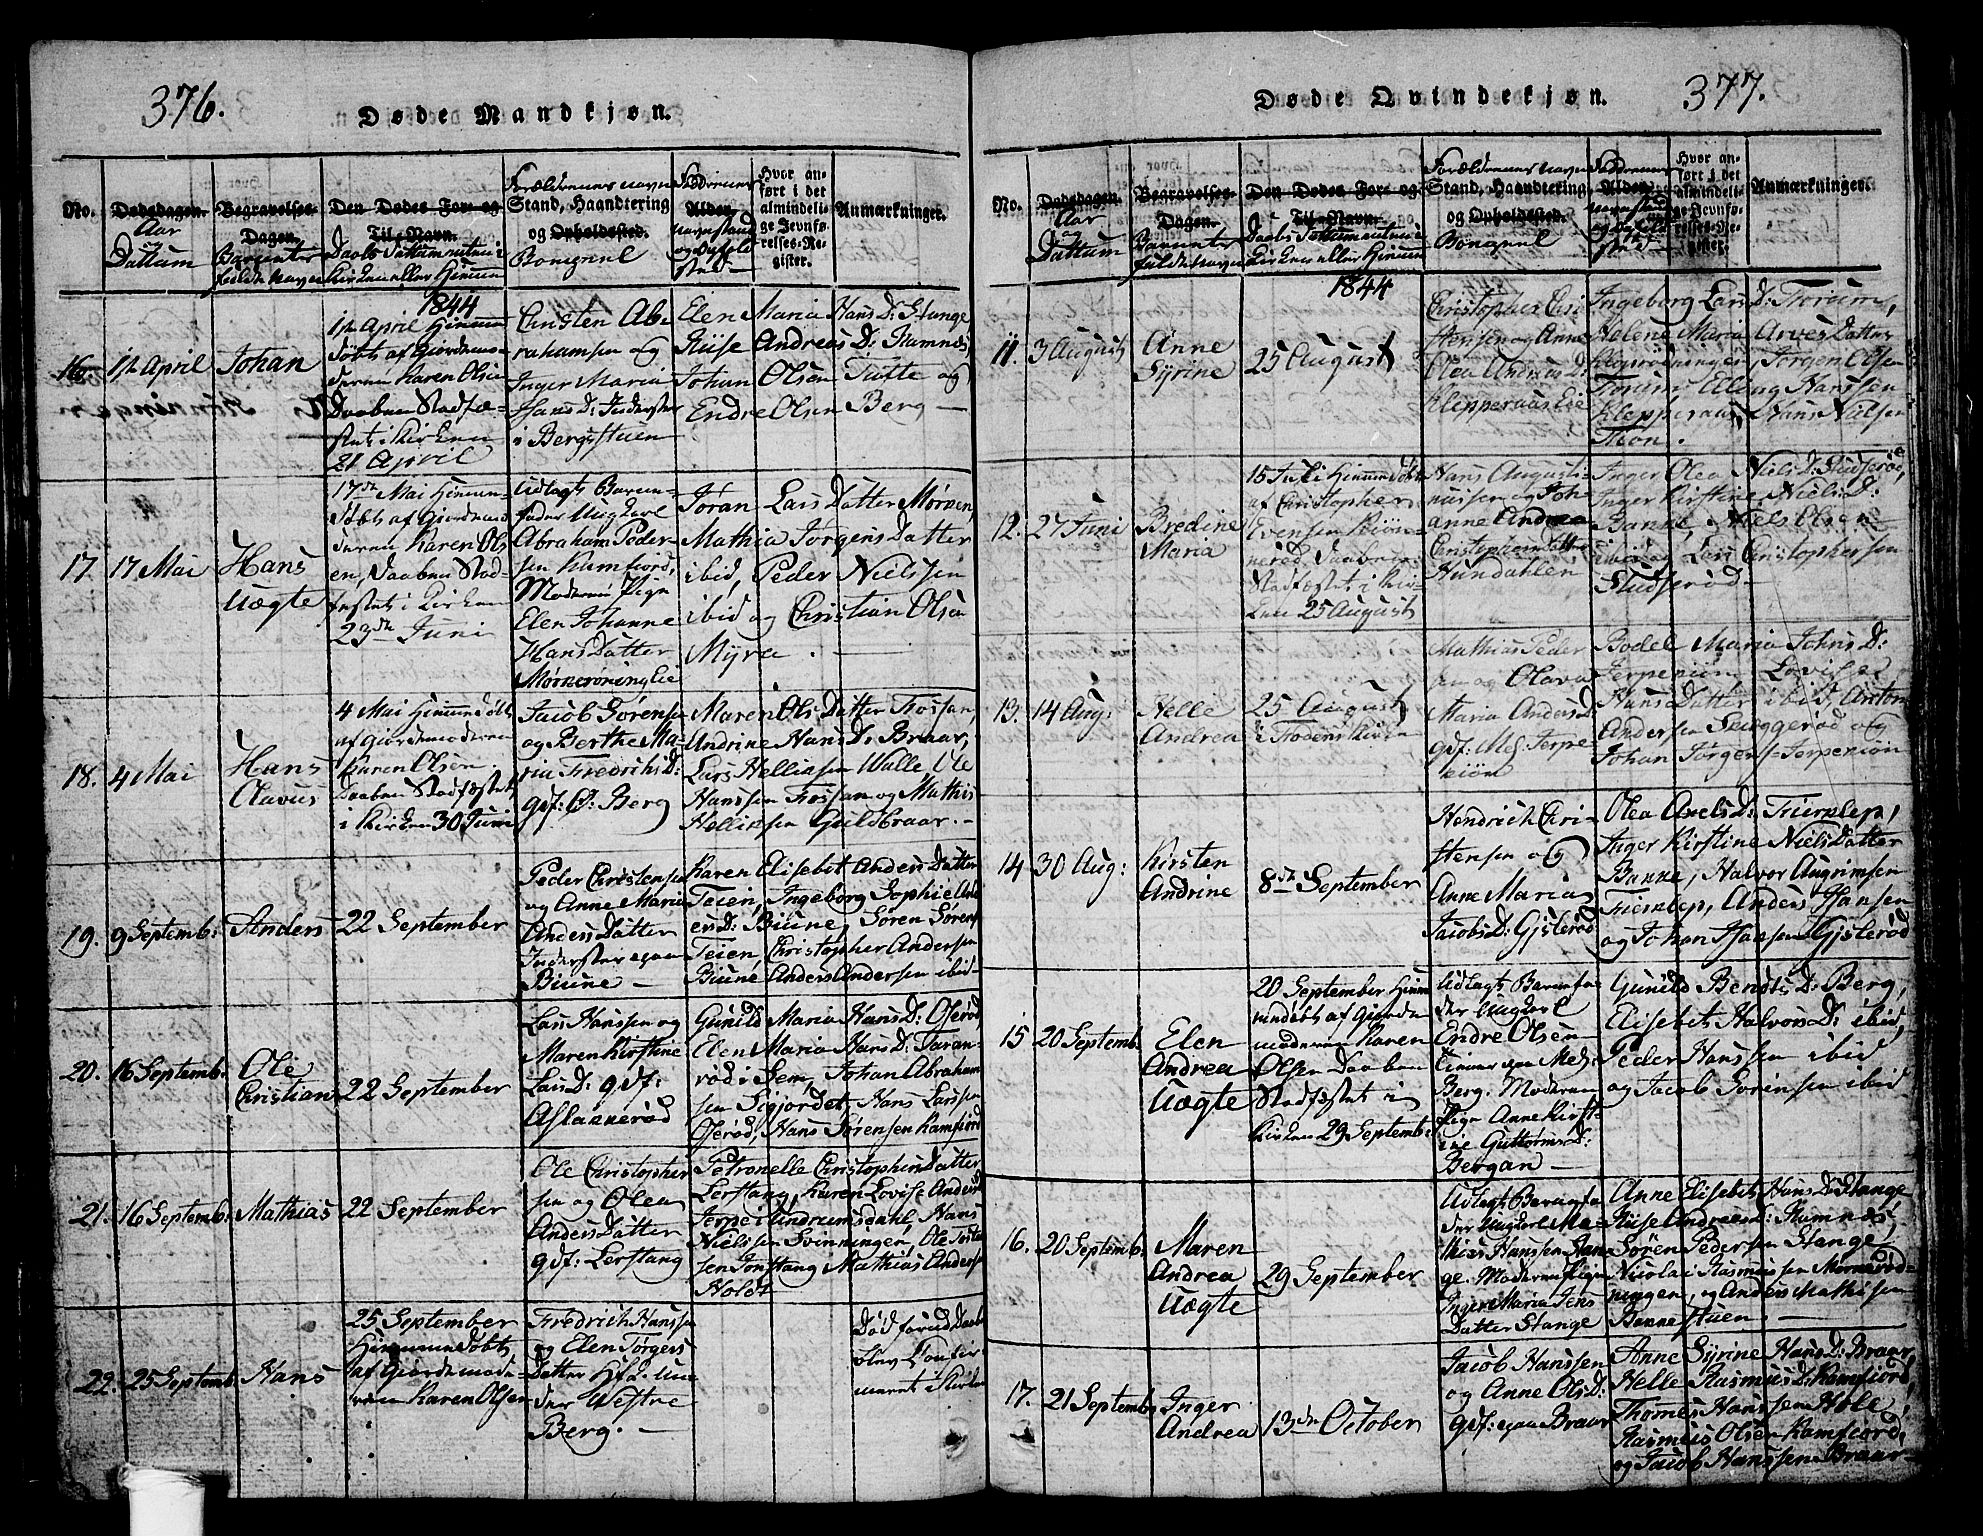 376.
Døde Mandkjøn.
No.
Dødsdagen.
Aar
Dattum
Begravelses-
Dagen.
Barnets
fulde Navn
Den Dødes For- og
Til-Navn.
Daabs Dattum enten i
Kirken eller Hiemme
Forældrenes Navn
Stand, Haandtering
og Opholdssted.
Faddernes
Alder.
navn stand
og Ophold
sted
Hvor an-
ført i det
almindeli-
ge Jevnfø-
relses-Re-
gister.
Anmærkninger.
1844
16
14 April
Johan
14 April Hiemme
døbt af Giordemo-
deren Karen Olsen
Daaben Stadfæ-
stet i Kirken
21 April
Christen Ab-
rahamsen og
Inger Maria
Hans D: Inderster
i Bergstuen
Elen Maria Hans D: Stange,
Riise Andreas D: Ramnæs,
Johan Olsen Tufte og
Endre Olsen Berg —
17.
17 Mai
Hans
Uægte
17de Mai Hiemme-
døbt af Giordemo
deren Karen Ols
en, Daaben Stad-
fæstet i Kirken
23de Juni
Udlagt Barne-
fader Ungkarl
Abraham Peder-
sen Ramfiord,
Moderen Pige
Elen Johanne
Hans Datter
Mørnerøning Eie
Jøran Lars Datter Mørven,
Mathia Jørgens Datter
ibid, Peder Nielssen
ibid og Christian Olsen
Myra. —
18.
4 Mai
Hans
Olavus
4 Mai Hiemmedøbt
af Giordemoderen
Karen Olsen.
Daaben Stadfæstet
i Kirken 30 Juni
Jacob Sørensen
og Berthe Ma-
ria Fredrichs D:
gdf: Ø: Berg
Maren Ols Datter Fossan,
Andrine Hans D: Braar,
Lars Helliesen Walle Ole
Hanssen Fossan og Mathis
Helliesen Guldbraar. —
19.
9 Septemb:
Anders
22 September
Peder Christensen
og Anne Maria
Anders Datter
Inderster paa
Biune —
Karen Elisebet Anders Datter
Teien, Ingeborg Sophie And
ers D: Biune, Søren Sørens
Teien, Christopher Andersen
Biune Anders Andersen ibid
20.
16 Septemb:
Ole
Christian
22 September
Lars Hanssen og
Maren Kirstine
Lars D: gdf:
Aslaknerød
Gunild Maria Hans D: Oserød
Elen Maria Hans D: Taran
rød i Sem, Johan Abraham
sen Sigjordet Hans Larssen
Oserød, Hans Sørensen Ramfiord
21.
16 Septemb:
Mathias
22 September
Ole Christopher
sen og Olea
Anders Datter
gdf: Lerstang
Petronelle Christophers Datter
Lerstang, Karen Lovise Anders D
Jerpe i Undrumsdahl, Hans
Nielssen Svinningen, Ole
sen Mathias Andersen
Holdt
22.
25 Septemb.
Hans
25 September
Hiemmedøbt
af Giordemode
ren Karen Olsen
Fredrich Hanssen
og Elen Jørgens
Datter Hfd. un
der Westre
Berg. —
Død forend Daaben
blev Confir-
meret i Kirken
377.
Døde Qvindekjøn.
No.
Dødsdagen.
Aar
og
Dattum
Begravelses-
Dagen.
Barnets
fulde Navn
Den Dødes For- og
Til-Navn.
Daabs Dattum enten i
Kirken eller Hiemme
Forældrenes Navn
Stand, Haandtering
og Opholdssted.
Faddernes
Alder.
navn stand
og Ophold
sted
Hvor an-
ført i det
almindeli-
ge Jevnfø-
relses-Re-
gister.
Anmærkninger.
1844
11.
3 August
Anne
Syrine
25 August
Christopher Chri
stensen og Anne
Olea Andreas D:
Klepperaas Eie
Ingeborg Lars D: Fioruin,
Helene Maria Arves Datter
Jørgen Olsen
Hanssen
Klepperaas, Hans Nielsen
Fion.
12.
27 Juni
Bredine
Maria
15 Juli Hiemmedøbt
af Christopher
Evensen Kiøn-
nerød, Daaben
Stadfæstet i Kir-
ken 25 August
Hans Augusti-
nussen og Joh
anne Andrea
Christophers Datter
Hundahlen
Inger Olea Niels D: Sludserød,
Inger Kirstine Niels D:
Banne, Niels Olsen
ibid og Lars Christophersen
Sludserød
13.
14 Aug:
Helle
Andrea
25 August
i Fodens Kirke
Mathias Peder
sen og Olava
Maria Anders D
gdf: Mes. Jerpe
kiøn
Bodel Maria Johns D:
Jerpekiøn, Lovise
Hans Datter ibid, Anton
Andersen Snuggerød og
Johan Jørgens: Jerpekiøn
14
30 Aug:
Kirsten
Andrine
8de September
Hendrich Chri-
stensen og
Anne Maria
Jacobs D: Gislerød
Olea Axels D: Fierplep,
Inger Kirstine Niels Datter
Banne, Halvor Augrimsen
Fierplep, Anders Hansen
og Johan Hansen Gislerød
15
20 Septemb.
Elen
Andrea
Uægte
20 September Hiem
medøbt af Giorde
moderen Karen
Olsen Daaben
Stadfæstet i
Kirken 29 Septemb:
Udlagt Barnefa-
der Ungkarl
Endre Olsen
Tiener paa Mel.
Berg. Moderen
Pige Anne Kirst-
ine Guttorms D:
Bergan —
Gunild Bendts D: Berg,
Elisebet Halvors D: ibid,
Peder Hanssen ibid
og Jacob Sørensen ibid
16.
20 Septemb.
Maren
Andrea
Uægte
29 September
Udlagt Barnefa
der Ungkarl Ma-
thias Hanssen Stan
ge. Moderen Pige
Inger Maria Jens
Datter Stange
Anne Elisebet Hans D: Stange
Riise Andreas D: Ramnæs,
Søren Pedersen Stange
Nicolai Rasmussen Mørnerød-
ningen, og Anders Mathisen
Bønne Stuen —
17.
21 Septemb
Inger
Andrea
13de October
Jacob Hanssen
og Anne Ols D:
gdf: paa Braar
Anne Syrine Hans D: Braar,
Helle Rasmus D: Ramfiord,
Thomes Hanssen Hole,
Rasmus Olsen Ramfiord,
og Jacob Hanssen Braar —